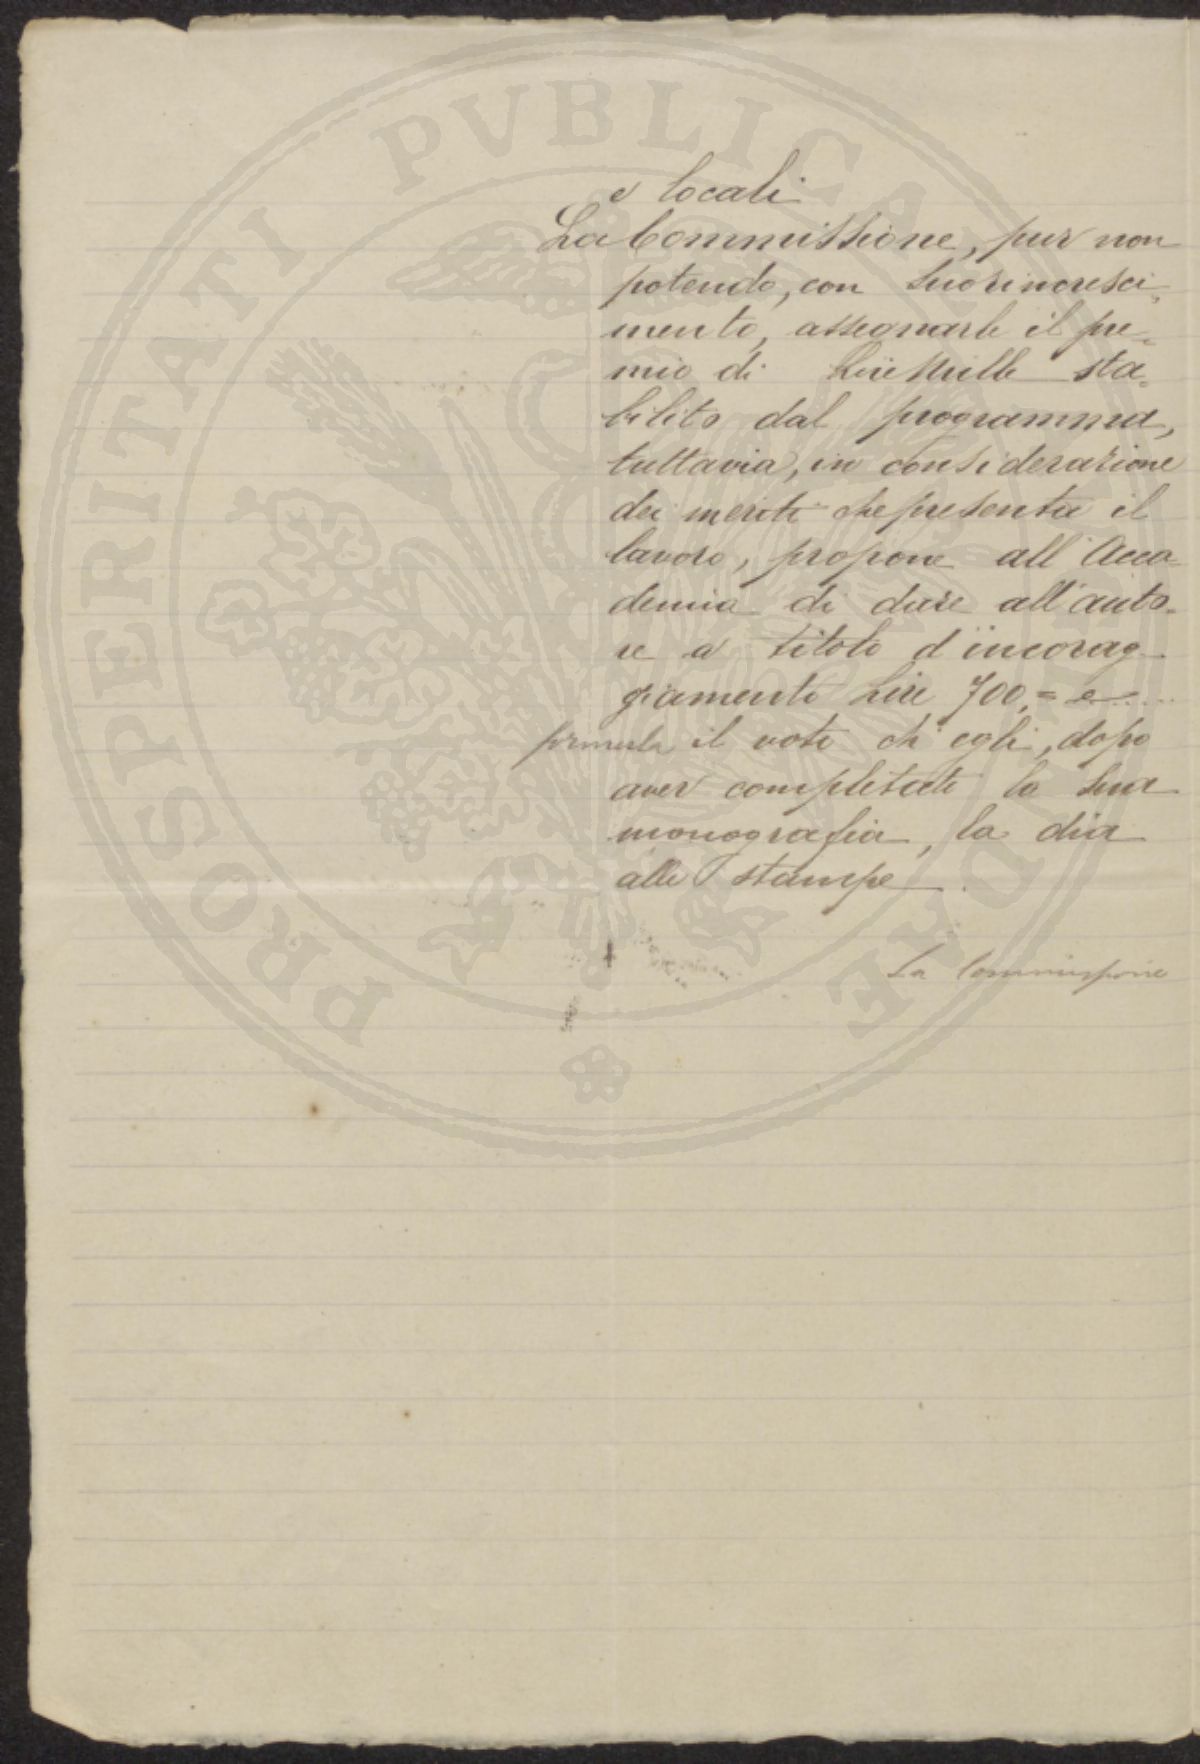 e locali
La Commissione, pur non
potendo, con suo rincresci-
mento, assegnarle il pre-
mio di Lire Mille sta-
bilito dal programma,
tuttavia, in considerazione
dei meriti che presenta il
lavoro, propone all'Acca
demia di dare all'auto-
re a titolo d'incorag-
giamento Lire 700,= e
formula il voto ch'egli, dopo
aver completato la sua
monografia, la dia
alle stampe.
La Commissione
PROSPERITATI PVBLICAE